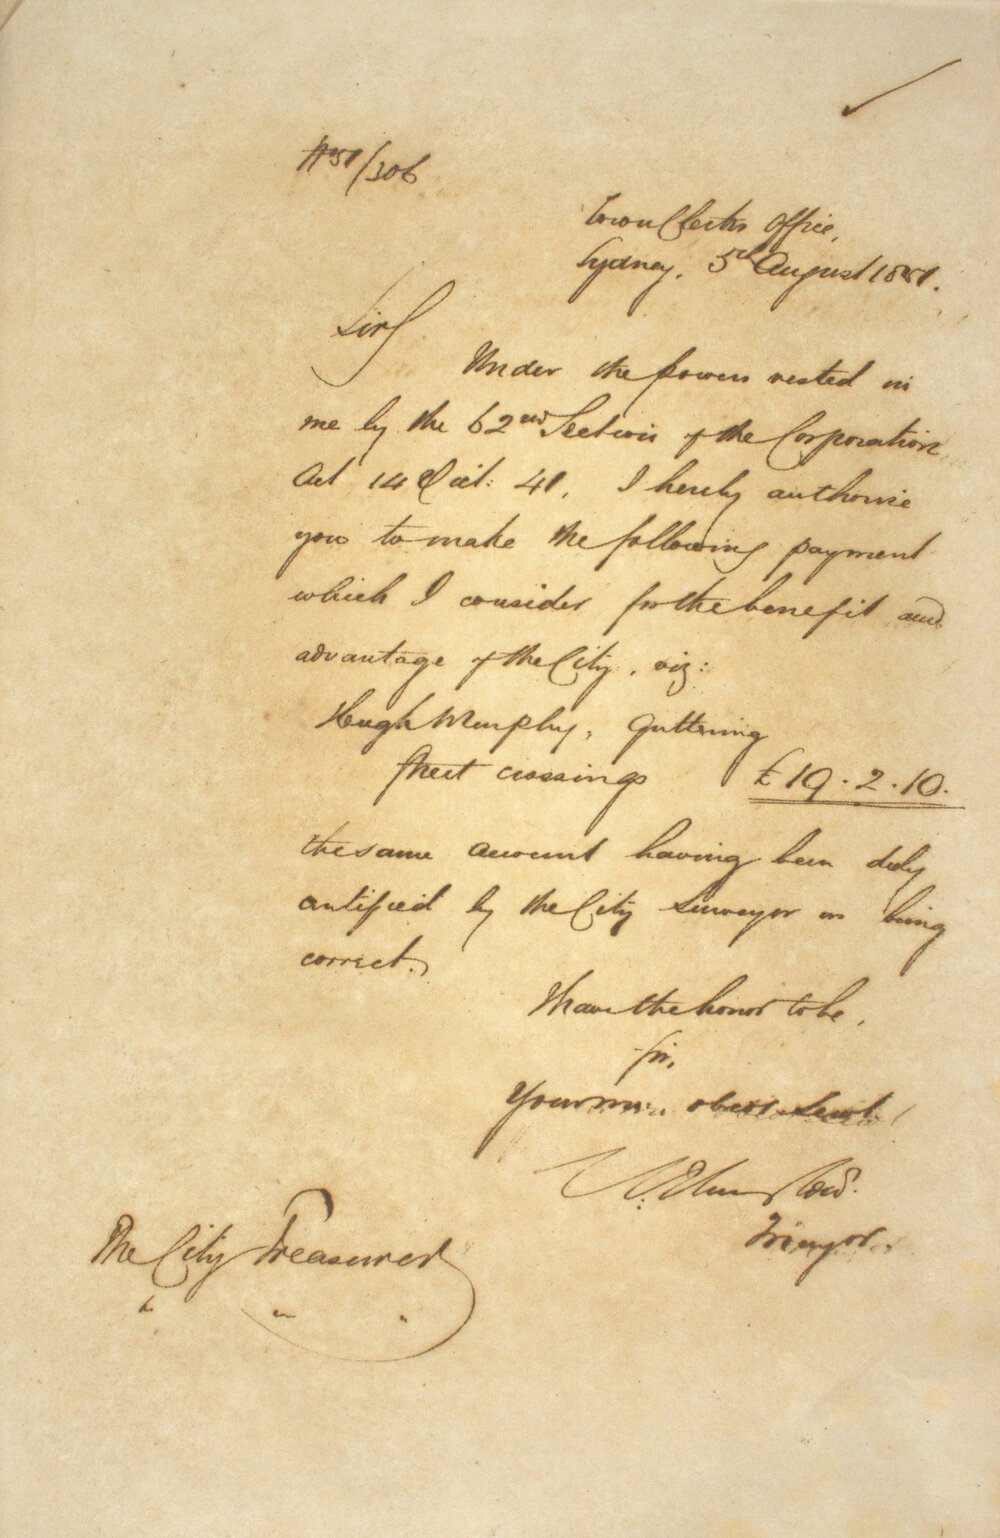 51/306
Town Clerks Office,
Sydney, 5th August 1851.
Sir
Under the powers vested in
me by the 62nd Section of the Corporation
Act 14 Vict: 41, I hereby authorise
you to make the following payment
which I consider for the benefit and
advantage of the City, viz:
Hugh Murphy, Guttering
Street crossings £19.2.10.
the same account having been duly
certified by the City Surveyor as being
correct.
I have the honor to be,
Sir,
Your obedt Servt
Mayor
The City Treasurer